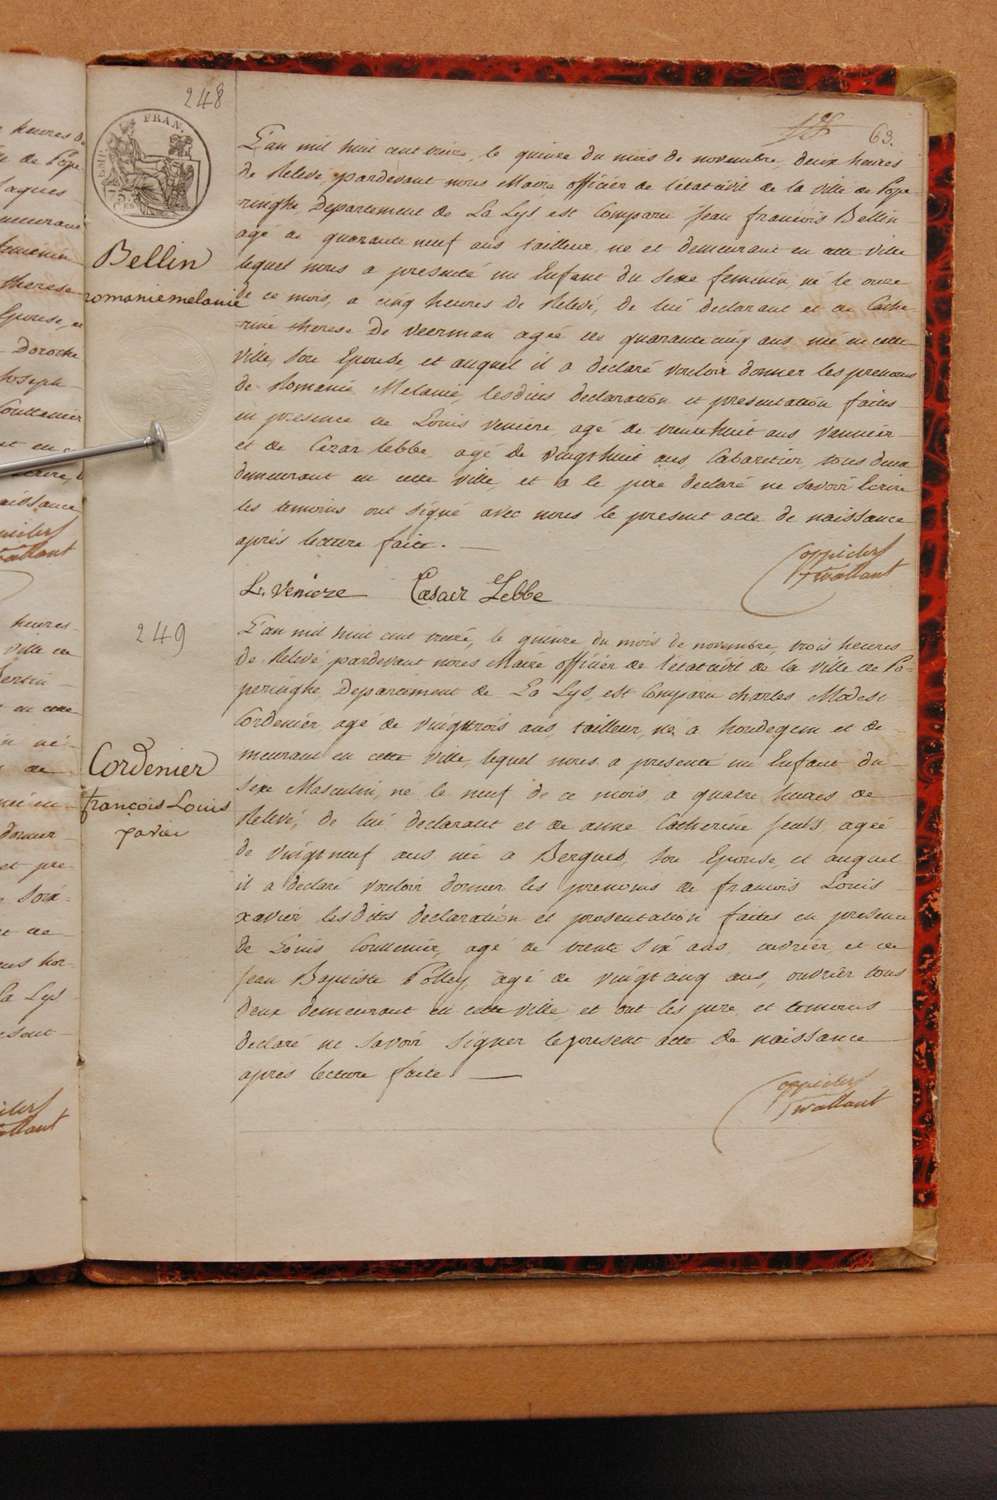 248
63.
EMP. FRAN.
L'an mil huit cent treize, le quinze du mois de novembre, deux heures
de Relevé, pardevant nous Maire officier de l'etat civil de la ville de Pope
ringhe, Departement de La Lys est Comparu Jean francois Bellin
agé de quarante neuf ans tailleur né et demeurant en cette ville
lequel nous a presenté un Enfant du Sexe feminin, né le onze
de ce mois, a cinq heures de Relevé, de lui declarant et de Cathe
rine therese De Veerman agée de quarante cinq ans, née en cette
ville, Son Epouse, et auquel il a declaré vouloir donner les prenoms
de Romanie Melanie, lesdites declaration et presentation faites
en presence de Louis Veniere agé de trente huit ans Vannier
et de Cezar Lebbe, agé de vingt huit ans Cabaretier, tous deux
demeurant en cette ville, et a le pere declaré ne savoir Ecrire
les temoins ont signé avec nous le present acte de naissance
après lecture faite.
Bellin
romanie melanie
L. Venieze Cæsaer Lebbe
249
L'an mil huit cent treize, le quinze du mois de novembre, trois heures
de Relevé pardevant nous Maire officier de l'etat civil de la ville de Po=
peringhe, Departement de La Lys, est Comparu charles Modest
Cordenier agé de vingt trois ans, tailleur, né a hondegem et de
meurant en cette ville, lequel nous a presenté un Enfant du
Sexe Masculin, né le neuf de ce mois a quatre heures de
Relevé, de lui declarant et de anne Catherine agée
de vingt neuf ans née a Bergues, Son Epouse, et auquel
il a declaré vouloir donner les prenoms de francois Louis
xavier lesdites declaration et presentation faites en presence
de Louis Couttenier, agé de trente Six ans, ouvrier, et de
Jean Baptiste agé de vingt cinq ans, ouvrier tous
deux demeurant en cette ville et ont les pere et temoins
declaré ne Savoir Signer le present acte de naissance
après lecture faite.
Cordenier
françois Louis
xavier